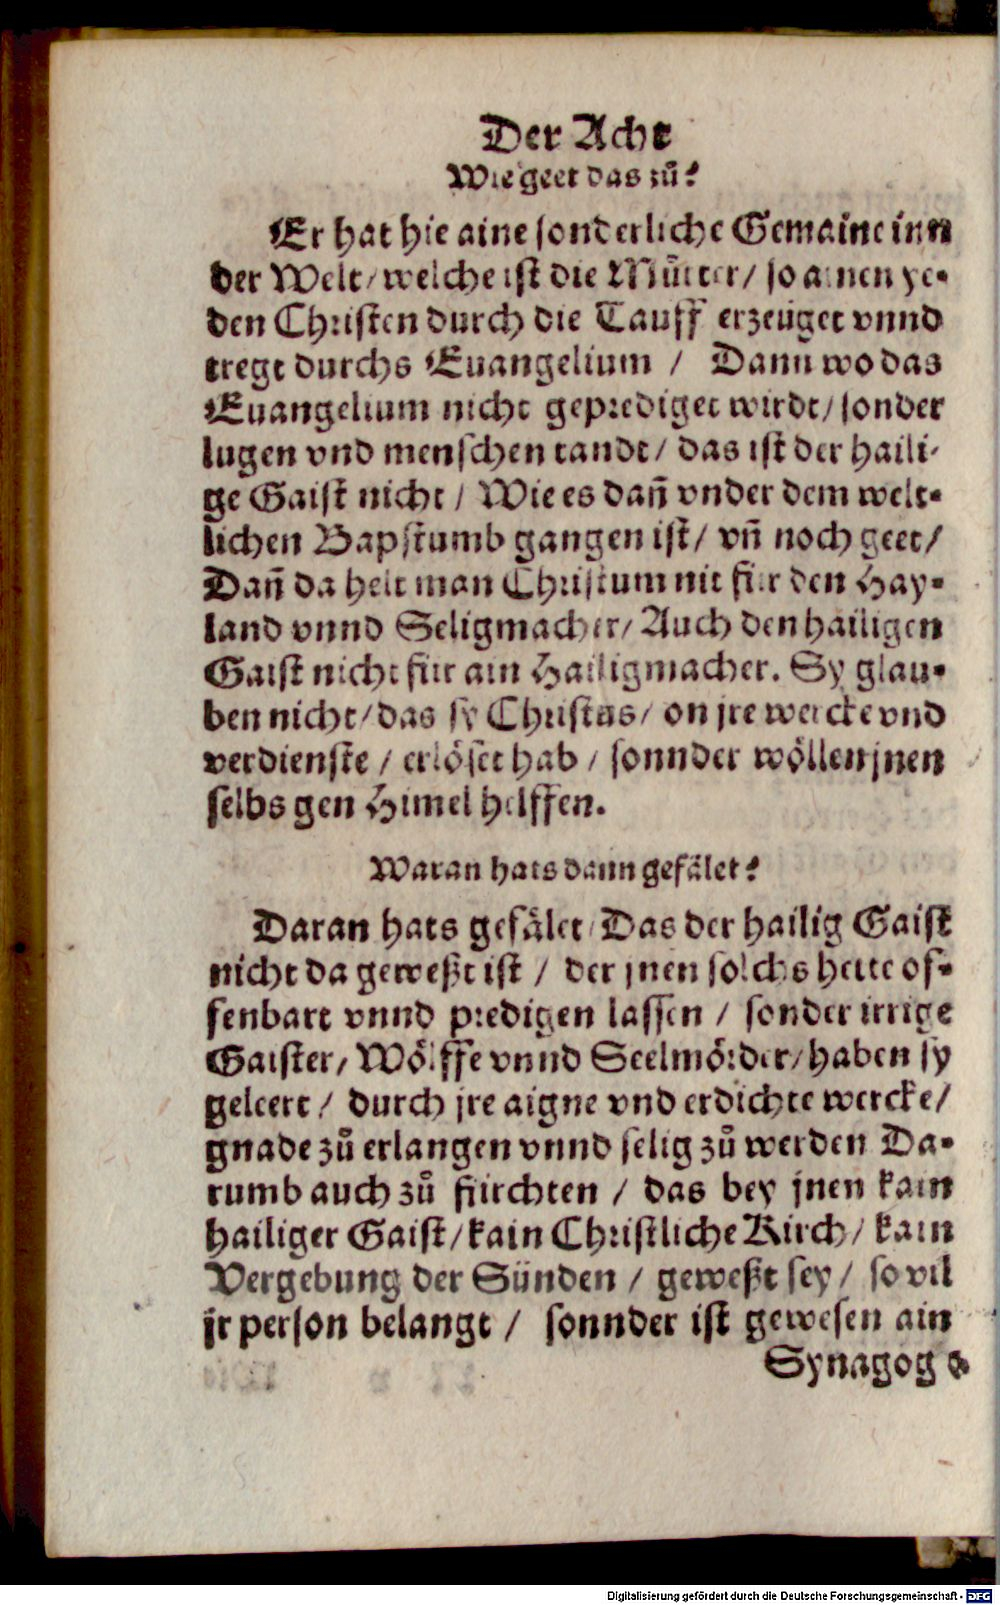 Der Acht
Wie geet das zů?
Er hat hie aine sonderliche Gemaine inn
der Welt/ welche ist die Můtter/ so ainen ye-
den Christen durch die Tauff erzeüget vnnd
tregt durchs Euangelium / Dann wo das
Euangelium nicht geprediget wirdt/ sonder
lugen vnd menschen tandt/ das ist der haili-
ge Gaist nicht / Wie es dañ vnder dem welt-
lichen Bapstumb gangen ist/ vñ noch geet/
Dañ da helt man Christum nit für den Hay-
land vnnd Seligmacher/ Auch den hailigen
Gaist nicht für ain Hailigmacher. Sy glau-
ben nicht/ das sy Christus/ on jre wercke vnd
verdienste / erlöset hab / sonnder wöllen jnen
selbs gen Himel helffen.
Waran hats dann gefälet?
Daran hats gefälet/ Das der hailig Gaist
nicht da geweßt ist / der jnen solchs hette of-
fenbart vnnd predigen lassen / sonder irrige
Gaister/ Wölffe vnnd Seelmörder/ haben sy
geleert / durch jre aigne vnd erdichte wercke/
gnade zů erlangen vnnd selig zů werden Da-
rumb auch zů fürchten / das bey jnen kain
hailiger Gaist/ kain Christliche Kirch/ kain
Vergebung der Sünden / geweßt sey / so vil
jr person belangt / sonnder ist gewesen ain
Synagog
Digitalisierung gefördert durch die Deutsche Forschungsgemeinschaft - DFG